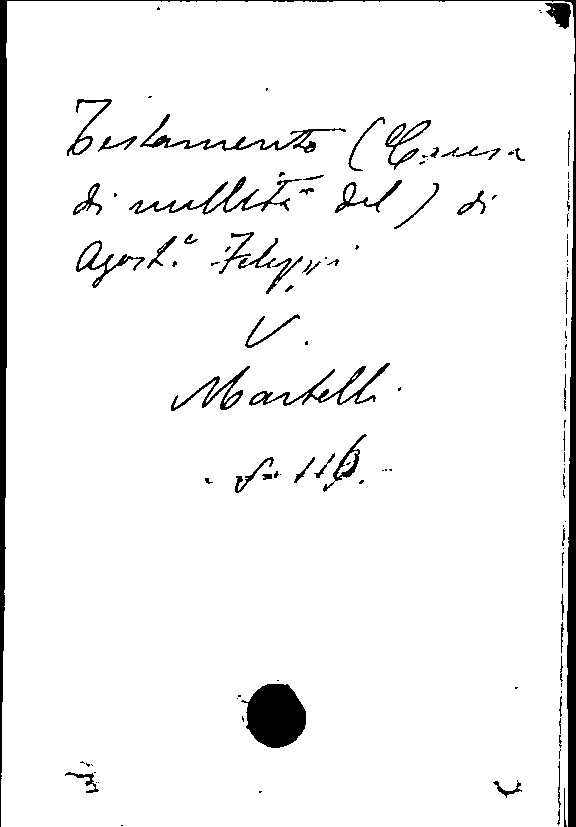 Testamento (Causa
di nullità del) di
Agost.º Filippi
V.
Martelli.